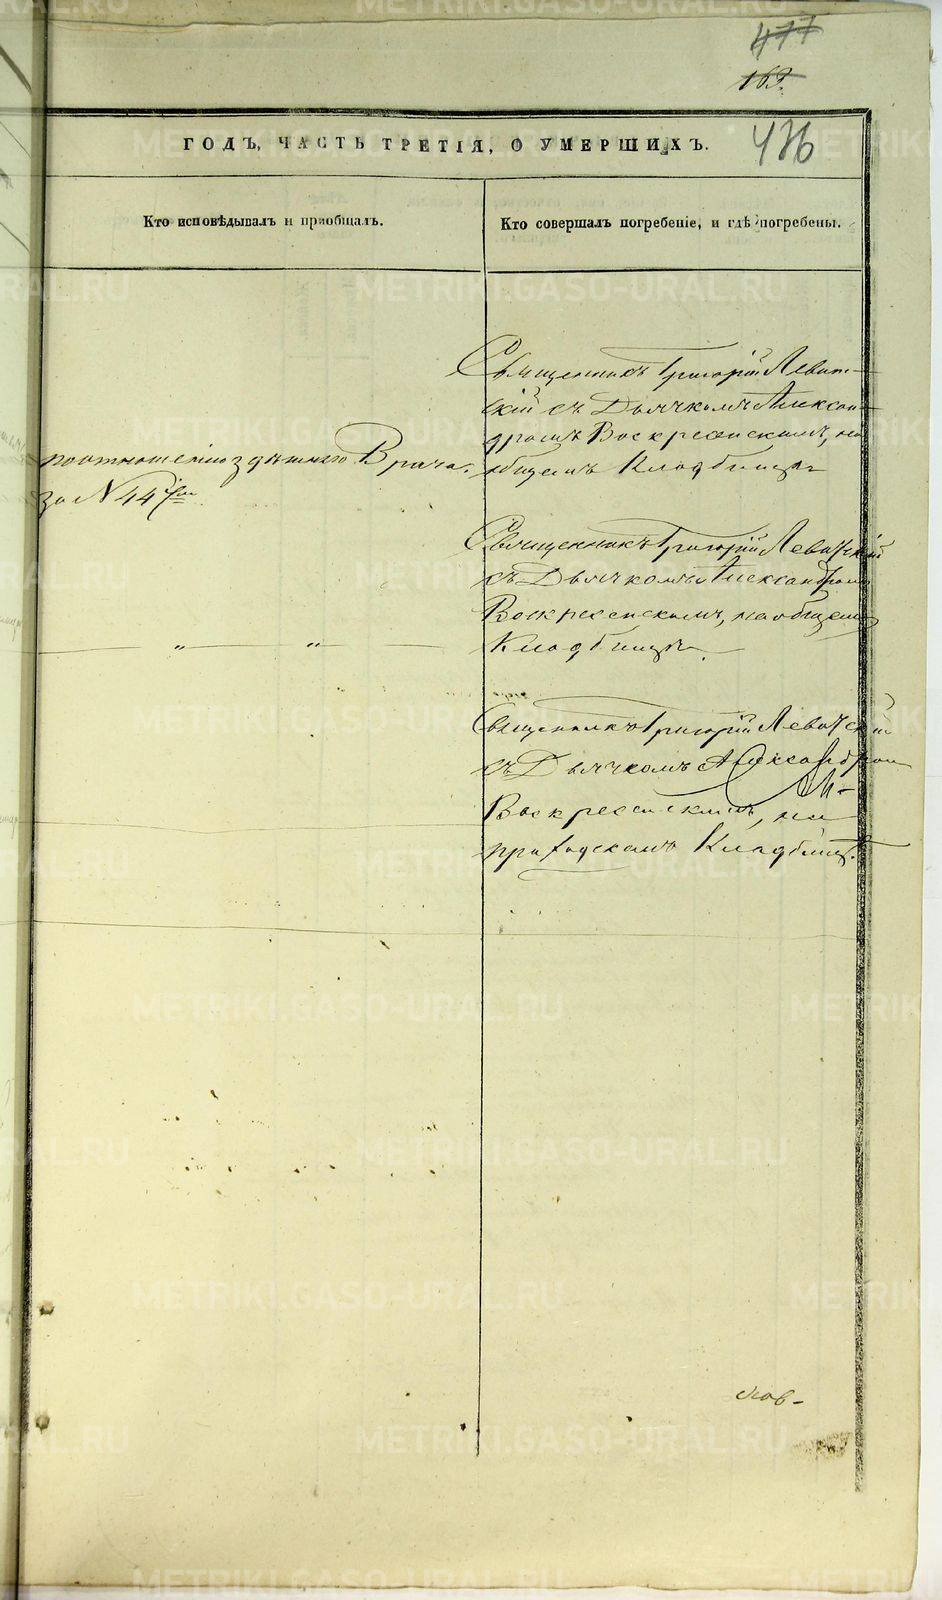 477
169.
476
ГОДЪ, ЧАСТЬ ТРЕТІЯ, О УМЕРШИХЪ.
Кто исповѣдывалъ и пріобщалъ.
Кто совершалъ погребеніе, и гдѣ погребены.
по отношенію здѣшняго Врача.
за N 447м
Священникъ Григорій Левит-
скій съ Дьячкомъ Алексан-
дромъ Воскресенскимъ, на
общемъ Кладбищѣ
Священникъ Григорій Левитскій
съ Дьячкомъ Александромъ
Воскресенскимъ, на общемъ
Кладбищѣ.
Священникъ Григорій Левитскій
съ Дьячкомъ Александром
Воскресенскимъ, на
приходскомъ Кладбищѣ.
METRIKI.GASO-URAL.RU